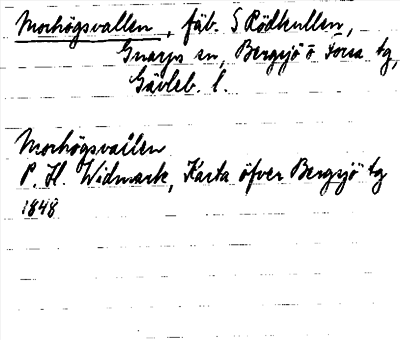 Morhögsvallen, fäb. S Rödkullen,
Gnarps sn, Bergsjö o Forsa tg,
Gävleb. l.
Morhögsvallen
P. H. Widmark, Karta öfver Bergsjö tg
1848